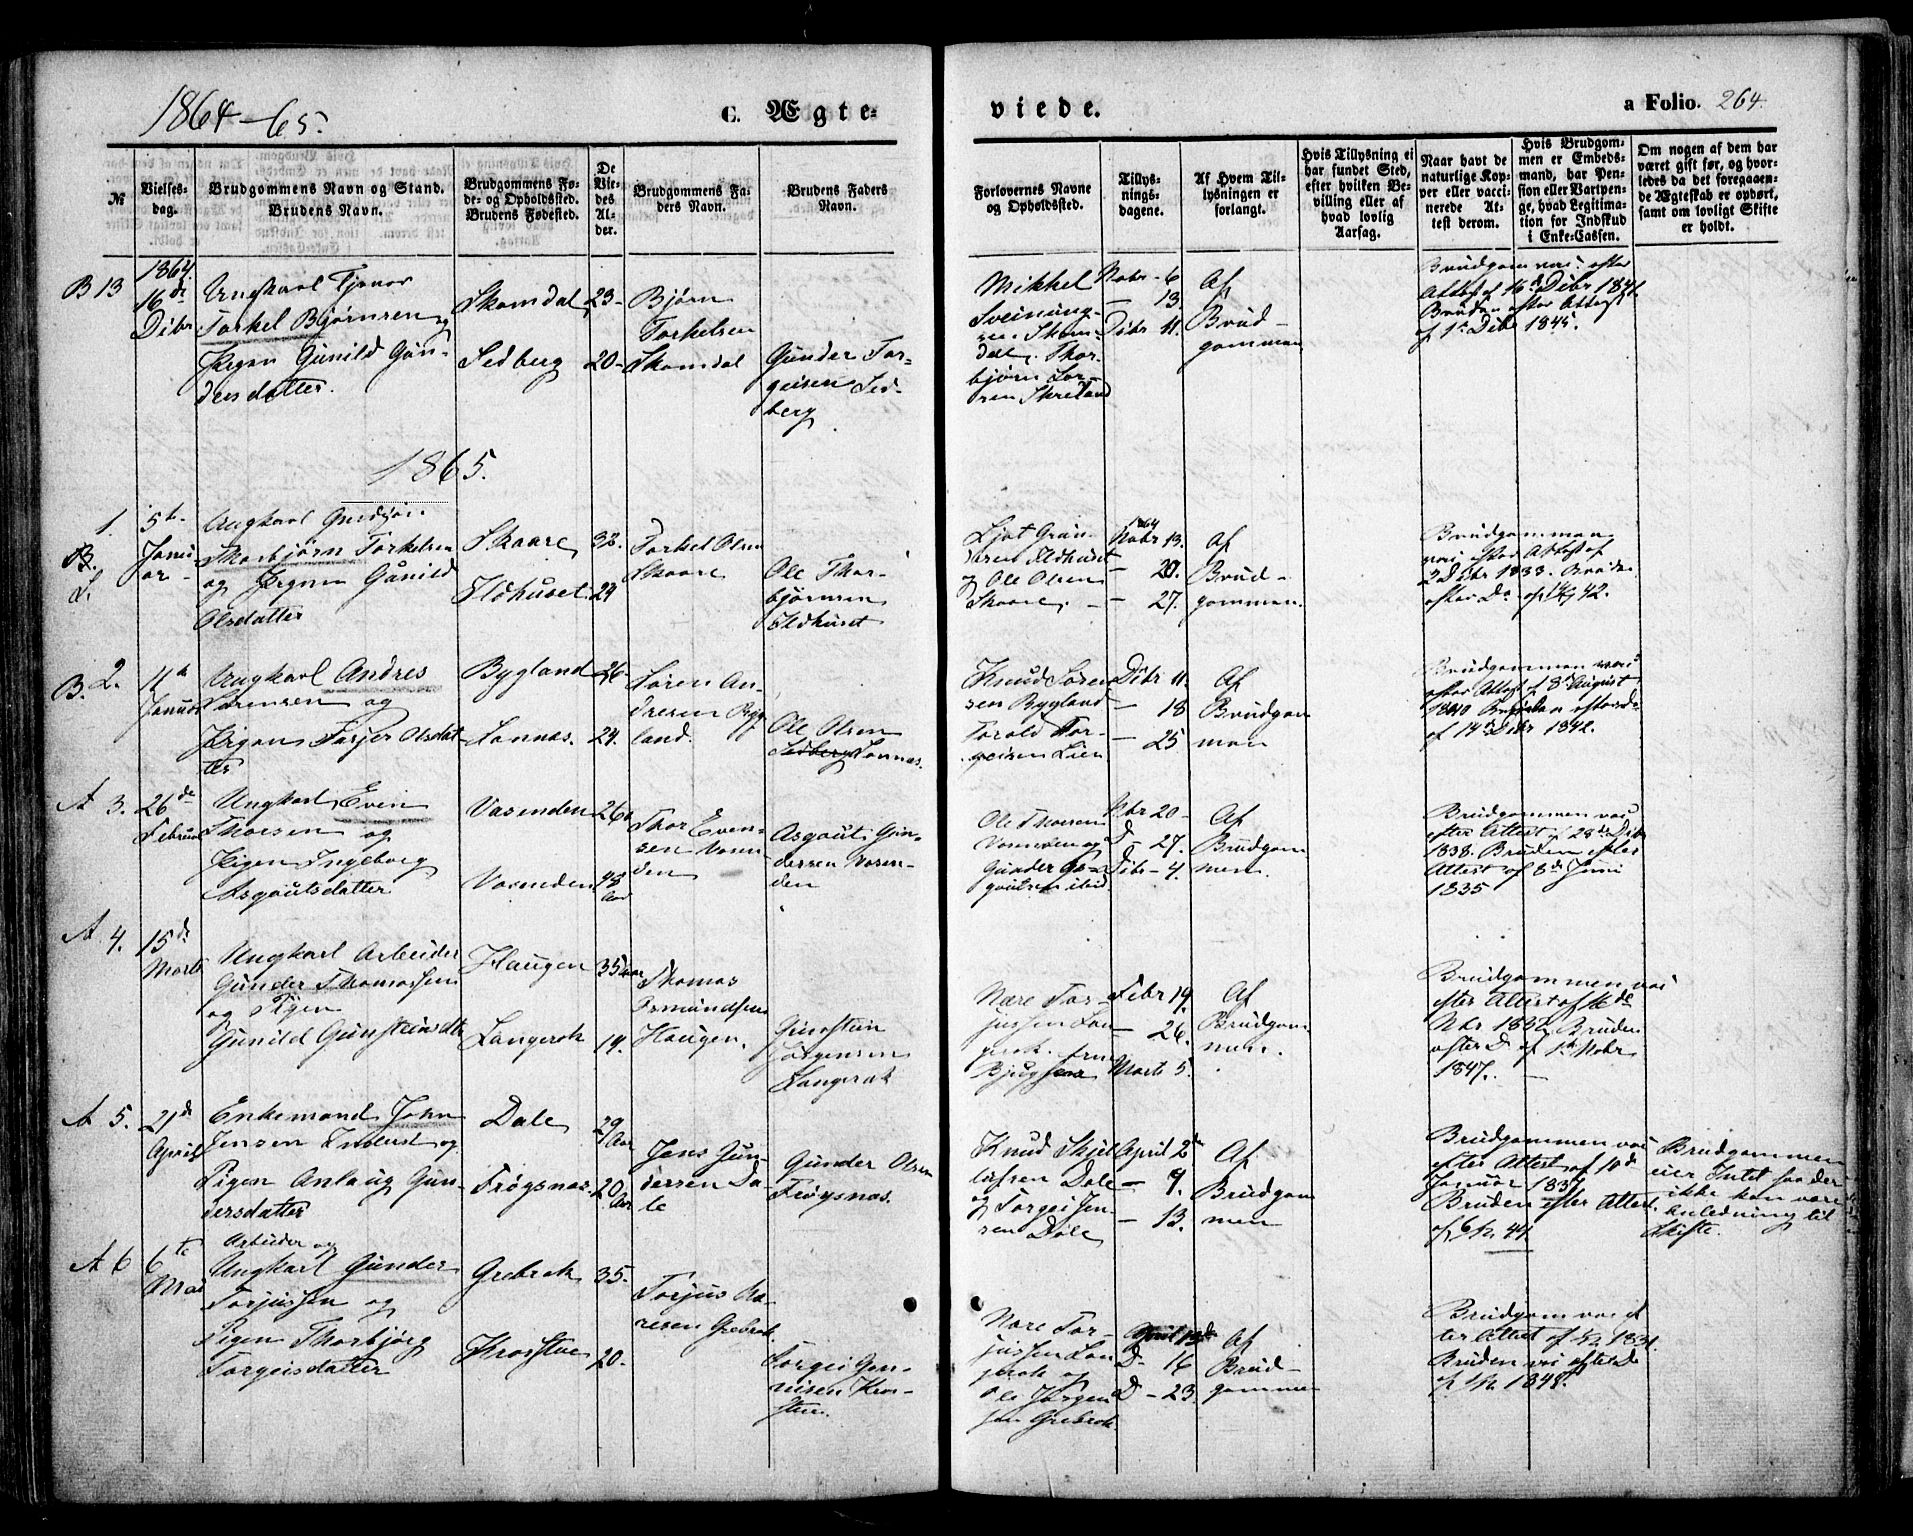 1864-65.
C. Ægte-
viede.
a Folio. 264.
№
Vielses-
dag.
Brudgommens Navn og Stand.
Brudens Navn.
Brudgommens Fø-
de- og Opholdssted.
Brudens Fødested.
De
Vie-
des
Al-
der.
Brudgommens Fa-
ders Navn.
Brudens Faders
Navn.
Forlovernes Navne
og Opholdssted.
Tillys-
nings-
dagene.
Af Hvem Til-
lysningen er
forlangt.
Hvis Tillysning ei
har fundet Sted,
efter hvilken Be-
villing eller af
hvad lovlig
Aarsag.
Naar havt de
naturlige Kop-
per eller vacci-
nerede At-
test derom.
Hvis Brudgom-
men er Embeds-
mand, har Pen-
sion eller Vartpen-
ge, hvad Legitima-
tion for Indskud
i Enke-Cassen.
Om nogen af dem har
været gift før, og hvor-
ledes da det foregaaen-
de Ægteskab er ophørt,
samt om lovligt Skifte
er holdt.
B 13
1864.
16de
Dibr
Ungkarl Tjener
Torkel Bjørnsen og
Pigen Gunild Gun-
dersdatter.
Skomdal
Sedberg
23-
20-
Bjørn
Torkelsen
Skomdal
Gunder Tor-
geisen Sed-
berg
Mikkel
Sveinung-
sen Skom-
dal. Thor-
bjørn Lor-
sen Skreland
Nobr - 6
- 13.
Dibr 11.
Af
Brud-
gommen
Brudgom vac. efter
Attest af 16d Dibr 1841
Bruden efter Attest
af 1st Dibr 1845.
1865.
1.
B.
5t-
Janu-
ar-
Ungkarl
Thorbjørn Torkelsen
og Pigen Gunild
Olsdatter
Skaare
Ildhuset
32.
29
Torkel Olsen
Skaare
Ole Thor-
bjørnsen
Ildhuset
Ljot Gun-
dersen Ildhuset
og Ole Olsen
Skaare.
1864
Nobr 13.
- 20.
- 27.
Af
Brud-
gommen.
Brudgommen
vac. efter Attest af
2 Dibr 1833. Bruden
efter Do af 42.
B. 2.
11te
Januar
Ungkarl Andres
Sørensen og
Pigen Torjer Olsdat-
ter
Bygland
Lonnas.
26-
24.
Søren An-
dresen Byg-
land.
Ole Olsen
Sedberg Lonnas.
Knud Søren-
sen Bygland
Torald Tor-
geisen Lien
Dibr 11.
- 18
- 25
Af
Brudgom
men
Brudgommen vac.
efter Attest af 8d August
1840 Bruden efter Do
af 14d Dibr 1842.
A 3.
26de
Februar
Ungkarl Even
Thorsen og
Pigen Ingeborg
Asgautsdatter
Vasenden
Vasenden
26
48
Aar
Thor Even-
sen Vasen-
den
Asgaut Gun-
dersen Vasen-
den
Ole Thorsen
Vasenden og
Gunder As-
gautsen ibid.
Nbr 20-
D - 27.
Dibr - 4.
Af
Brudgom
men.
Brudgommen vac.
efter Attest af 28de Dibr
1838. Bruden efter
Attest af 8de Juni
1835
A 4.
15de
Marts
Ungkarl Arbeider
Gunder Thomassen
og Pigen
Gunild Gunsteinsdtr
Haugen
Langerak
35 Aar
19.
Thomas
Osmundsen
Haugen.
Gunstein
Jørgensen
Langerak
Nære Tor-
jussen Lan-
gerak.
Febr 19.
- 26.
Marts 5.
Af
Brudgom
men.
Brudgommen vac
efter Attest af 16de
Nbr 1832 Bruden
efter D af 1st Nobr
1847. -
A 5.
21de
April
Enkemand John
Jensen Inderst og
Pigen Anlaug Gun-
dersdatter
Dale
Frøysnas.
29
Aar
20
Aar
Jens Gun-
dersen Da-
le
Gunder Olsen
Frøysnas.
Knud Skjel-
lessen Dale
og Torgei Jen-
sen Dale
April 2de
- 9.
- 13.
Af
Brudgom
men
Brudgommen vac
efter Attest af 10de
Januar 1837
Bruden efter Attest.
Brudgommen
eier Intet saa der
ikke kan være
Anledning til
Skifte.
A 6
6te
Mai
Arbeider og
Ungkarl Gunder
Torjussen og
Pigen Thorbjørg
Torgeisdatter
Grebrok
Krosstue
35.
20.
Torjus Na-
resen Grebrok
Torgei Gun-

Nære Tor-
jussen Lan-
gerak og
Ole Jørgen-
sen Grebrok
April 13de
D- 16
D - 23.
Af
Brud-
gommen
Brudgom vac ef
ter Attest af 1831.
Bruden vac efter D
1848